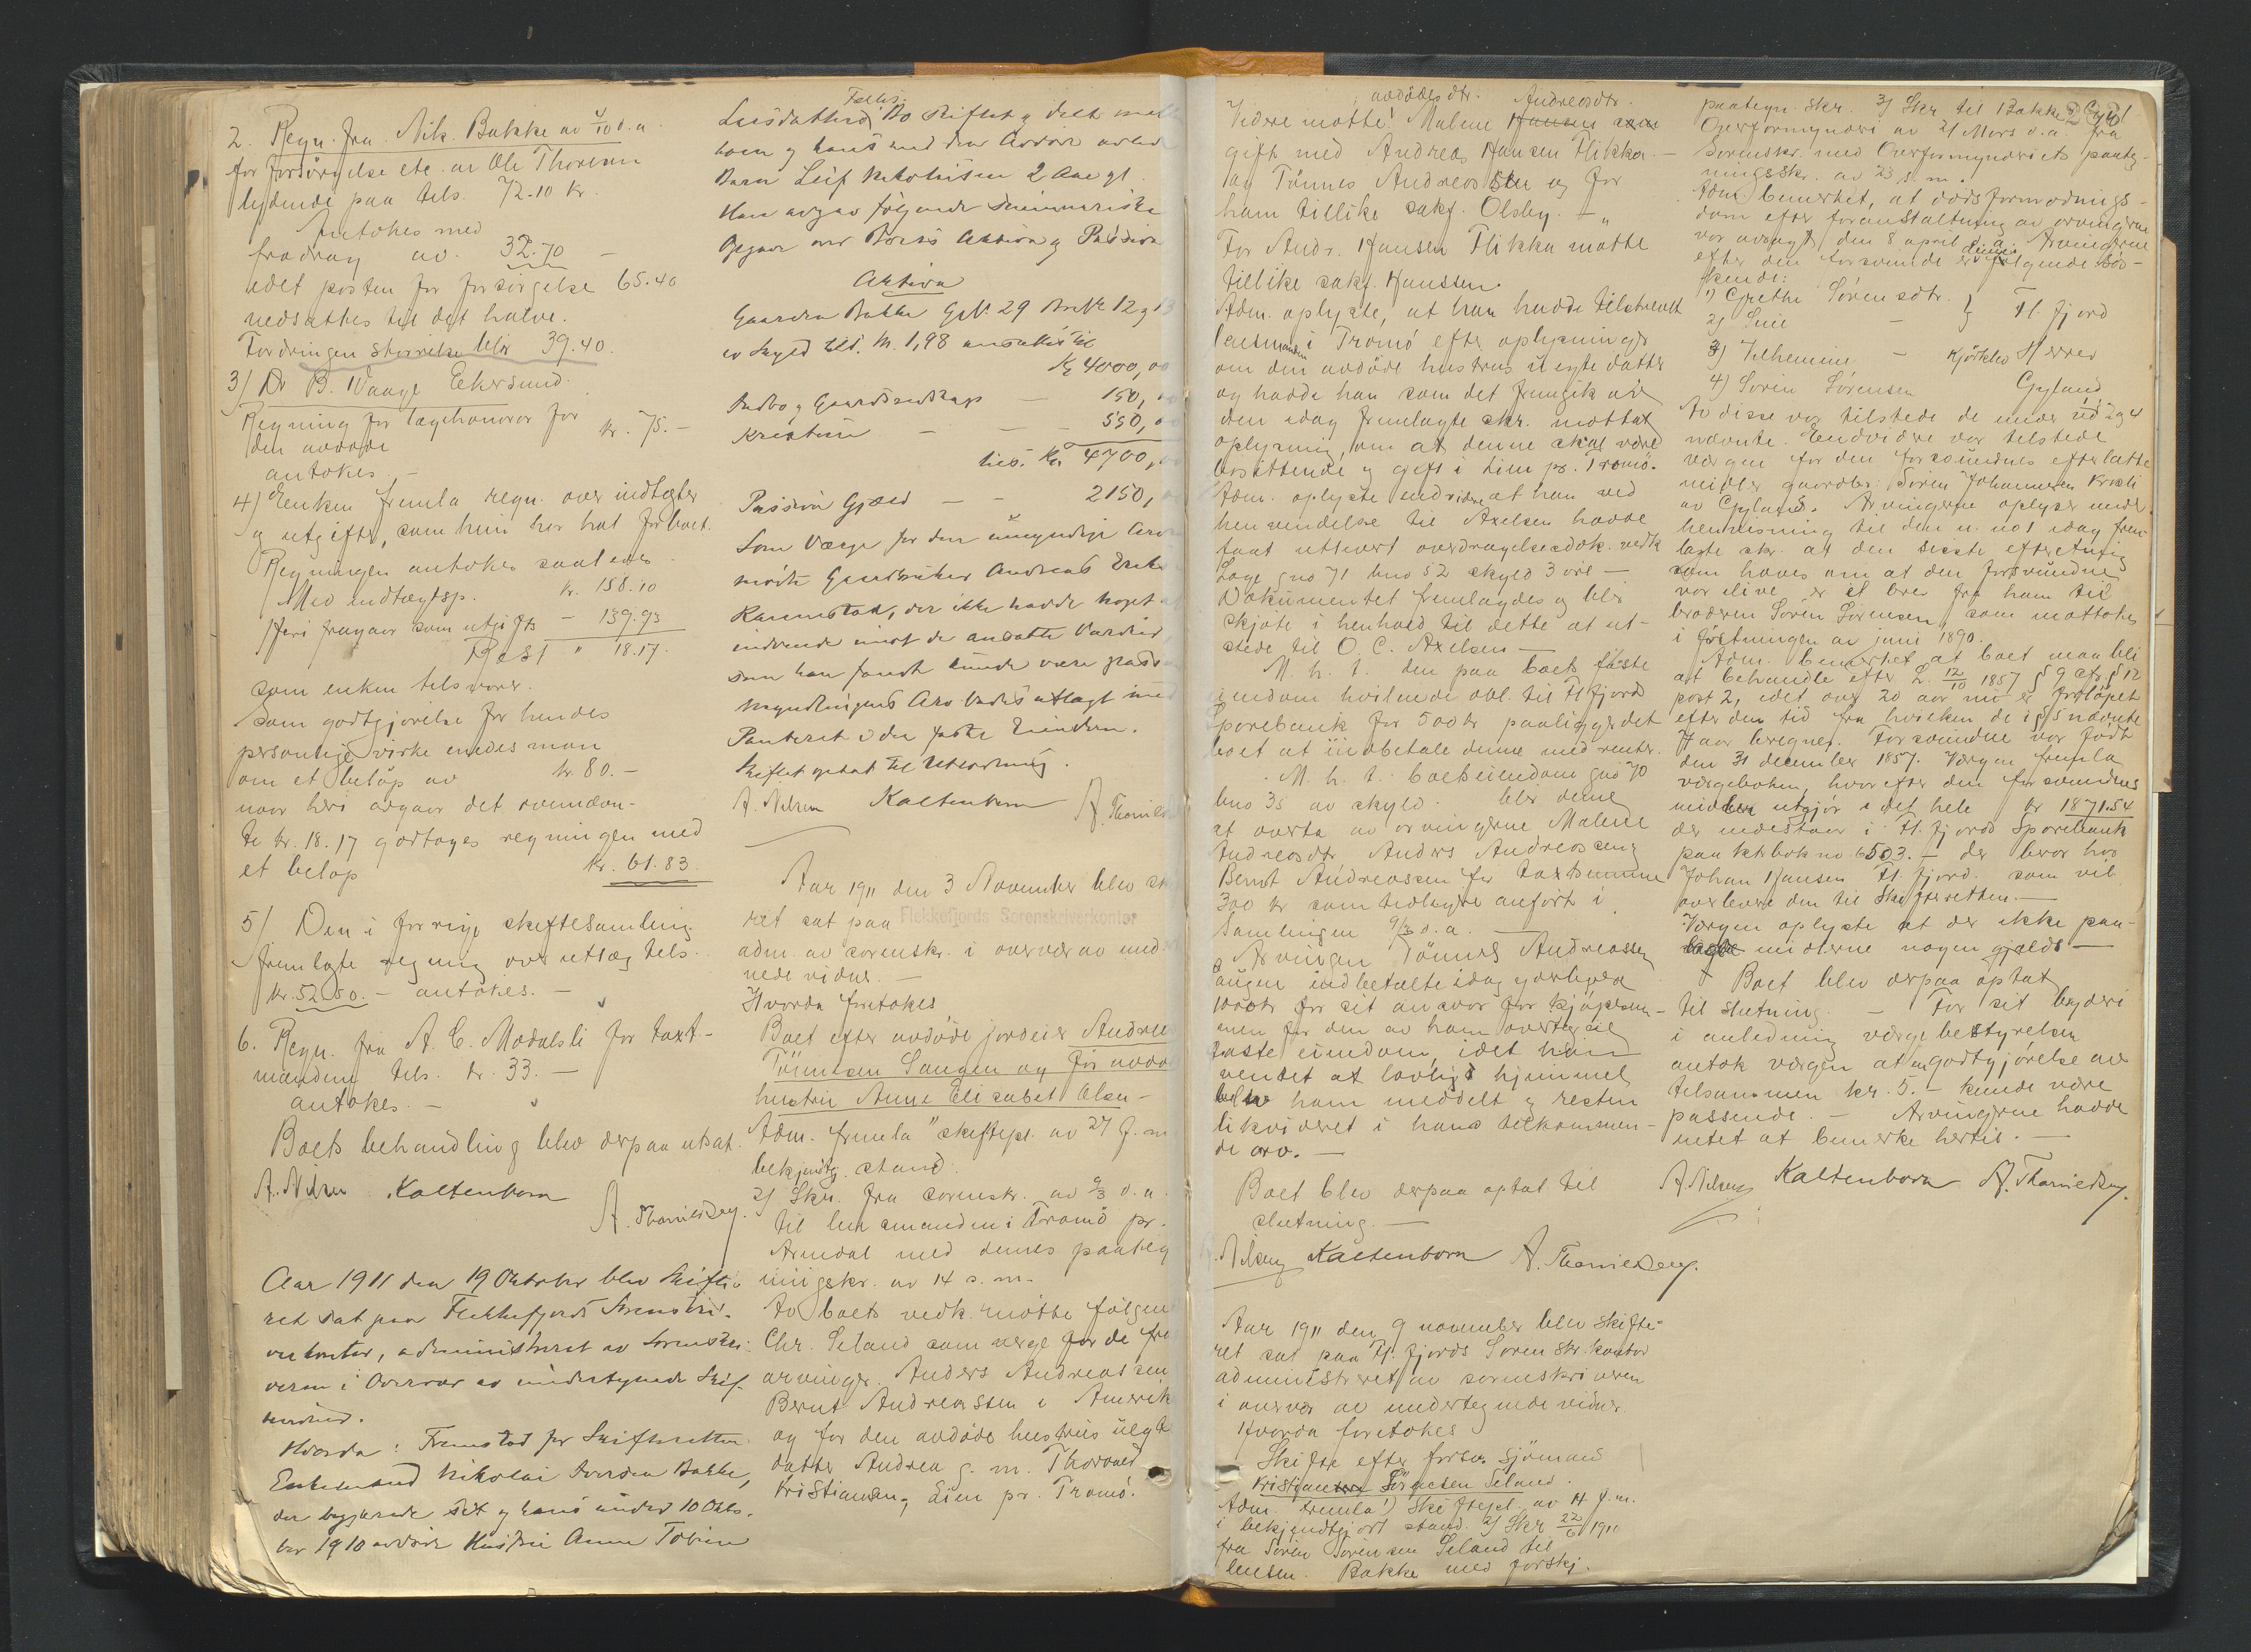 2. Regn. fra Nik. Bakke av 4/10 d.a.
for forsørgelse etc. av Ole Thorsen
lydende paa tils. 72.10 kr
Antokes med
fradrag av. 32.70 -
idet posten for forsørgelse 65.40
nedsattes til det halve.
Fordringen størrelse blir 39.40.
3/ Dr B. Vaage Ekersund.
Regning for lægehonorar for
den avdøde kr. 75.-
antokes -
4) Enken fremla regn. over indtægter
og utgifter, som hun har hat for boet.
Regningen antokes saaledes
Med indtægtsp. kr. 158.10
Heri fragaar som utgifts - 139.93
Rest " 18.17.
som enken tilsvarer.
Som godtgjørelse for hendes
personlige virke enedes man
om et beløp av kr. 80.-
naar heri avgaar det ovennævn-
te kr. 18.17 godtages regningen med
et beløp kr. 61.83.
5/ Den i forrige skiftesamling
fremlagte regning over utlæg tils.
kr. 52.50. - antokes. -
6. Regn. fra A. C. Modalsli for taxt-
mændene tils. kr. 33. -
antokes. -
Boets behandling blev derpaa utsat.
A. Nilsen Kaltenborn
A. Thorniedsen.
Aar 1911 den 19 Oktober blev Skifte-
ret sat paa Flekkefjords Sorenskri-
verkontor, administreret av Sorenskri-
veren i Overvær av undertegnede Skif-
tevidner.
Hvorda: Fremstod for Skifteretten
Enkemand Nikolai Iversen Bakke,
der begjærede sit og hans under 10 Okto-
ber 1910 avdøde Hustru Anna Tobine
Fælles-
Leisdatters Bo skiftet og delt mellem
ham og hans med den Avdøde avlede
Barn Leif Nikolaisen 2 Aar gl.
Han avgav følgende summariske
Opgave over Boets Aktiva og Passiva
Aktiva
Gaarden Bakke GsNr. 29 BrsNr 12 og 13
av Skyld tils. M. 1,98 ansattes til
Kr 4000,00
Indbo og Gaardsredskap - 150,00
Kreaturer - - - 550,00
tils. Kr. 4700,00
Passiva Gjæld - - 2150,
Som Værge for den umyndige Arving
mødte Gaardbruker Andreas
Rannestad, der ikke hadde noget at
indvende imot de ansatte Værdier
som han fandt kunde være passende
Myndlingens Arv bades utlagt mod
Panteret i den faste Eiendom.
Skiftet optat til Utlodning.
A. Nilsen Kaltenborn A. Thornied
Aar 1911 den 3 November blev skifte-
ret sat paa Flekkefjords Sorenskriverkontor
adm. av sorenskr. i overvær av underteg-
nede vidner. -
Hvorda foretokes
Boet efter avdøde jordeier Andreas
Tønnesen Saugen og før avdøde
hustru Anne Elisabet Olsen -
Adm. fremla 1) skiftepl. av 27 f. m
bekjendtg. stand:
2) Skr. fra sorenskr. av 9/3 d. a.
til lensmanden i Tromø pr.
Arendal med dennes paateg-
ningskr. av 14 s. m.
Av boets vedk. møtte følgende
Chr. Seland som verge for de fra
arvinger. Anders Andreassen
Bernt Andreassen i Amerika
og for den avdøde hustrus uegte
datter Andrea g. m. Thorvald
Kristiansen, Eien pr. Tromø.
avdødes dtr. Andreasdtr.
Videre møtte: Malene Hansens
gift med Andreas Hansen Flikka. -
og Tønnes Andreassen og for
ham tillike sakf. Olsby. - "
For Andr. Hansen Flikka møtte
tillike sakf. Hanssen.
Adm. oplyste, at han hadde tilskrevet
lensmanden i Tromø efter oplysnings
om den avdøde hustrus uegte datter
og hadde han som det fremgik av
den idag fremlagte skr. mottat
oplysning, om at denne skal være
bosittende og gift i Eien pr. Tromø.
Adm. oplyste endvidere at han ved
henvendelse til Axelsen hadde
faat utlevert overdragelsesdok. vedk
Løge gno 71 bno 52 skyld 3 øre -
Dokumentet fremlagdes og blev
skjøte i henhold til dette at ut-
stede til O. C. Axelsen -
M. h. t. den paa boets faste
eiendom hvilende obl. til Fl.fjords
Sparebank for 500 kr paaligger det
boet at indbetale denne med renter.
M. h. t. boets eiendom gno 70
bno 35 av skyld. blir denne
at overta av arvingerne Malene
Andreasdtr. Anders Andreassen og
Bernt Andreassen for taxtsumme
300 kr som tidligere anført i
samlingen 9/3 d. a.
Arvingen Tønnes Andreassen
Saugen indbetalte idag yderligere
1050 kr for sit ansvar for kjøpesum-
men for den av ham overtagne
faste eiendom, idet han
ventet at lovligt hjemmel
blev ham meddelt og resten
likvideret i hans tilkommen-
de arv. -
Boet blev derpaa optat til
slutning. -
A. Nilsen Kaltenborn A. Thorniedsen.
Aar 1911 den 9 november blev skifte-
ret sat paa Fl. fjords Soren skr. kontor
administreret av sorenskriveren
i overvær av undertegnede vidner.
Hvorda foretokes
Skifte efter forsv. sjømand
Kristian Sørensen Seland.
Adm. fremla 1) Skiftepl. av 14 f.m.
i bekjendtgjort stand. 2) Skr. 22/6 1911
fra Søren Sørensen Seland til
lensm. Bakke med forskj.
paategn. skr. 3) Skr til Bakke og Gyl.
Overformynderi av 21 Mars d.a. fra
Sorenskr. med Overformynderiets paateg-
ningsskr. av 23 s. m.
Adm bemerket, at dødsformodnings-
dom efter foranstaltning av arvingerne
var avsagt den 8 april d.a. Arvingerne
efter den forsvundne er følgende søs-
kende:
1) Grethe Sørensdtr. } Fl. fjord
2) Sine -
3) Vilhemine - Kjørklev Herred
4) Søren Sørensen Gyland
Av disse var tilstede de under No 2 og 4
nævnte. Endvidere var tilstede
værgen for den forsvundnes efterlatte
midler gaardbr. Søren Johannesen Kvæli
av Gyland. Arvingerne oplyser under
henvisning til den u. no 1 idag frem-
lagte skr. at den sidste efterretning
som haves om at den forsvundne
var ilive er et brev fra ham til
broderen Søren Sørensen, som mottokes
i slutningen av juni 1890.
Adm. bemerket at boet maa bli
at behandle efter L. 12/10 1857 § 9 cfr § 12
post 2, idet over 20 aar nu er forløpet
efter den tid fra hvilken de i § 5 nævnte
7 aar beregnes. Forsvundne var født
den 31 december 1857. Værgen fremla
værgeboken, hvorefter den forsvundnes
midler utgjør i det hele kr 1871.54
der indestaar i Fl. fjords Sparebank
paa ktrbok no. 6503. - der beror hos
Johan Hansen Fl. fjord. som vil
overlevere den til Skifteretten. -
Værgen oplyste at der ikke paa-
midlerne nogen gjæld -
Boet blev derpaa optat
til slutning. - For sit besvær
i anledning værgebestyrelsen
antok værgen at en godtgjørelse av
tilsammen kr. 5. - kunde være
passende. - Arvingerne hadde
intet at bemerke hertil. -
A. Nilsen Kaltenborn A. Thorniedsen.